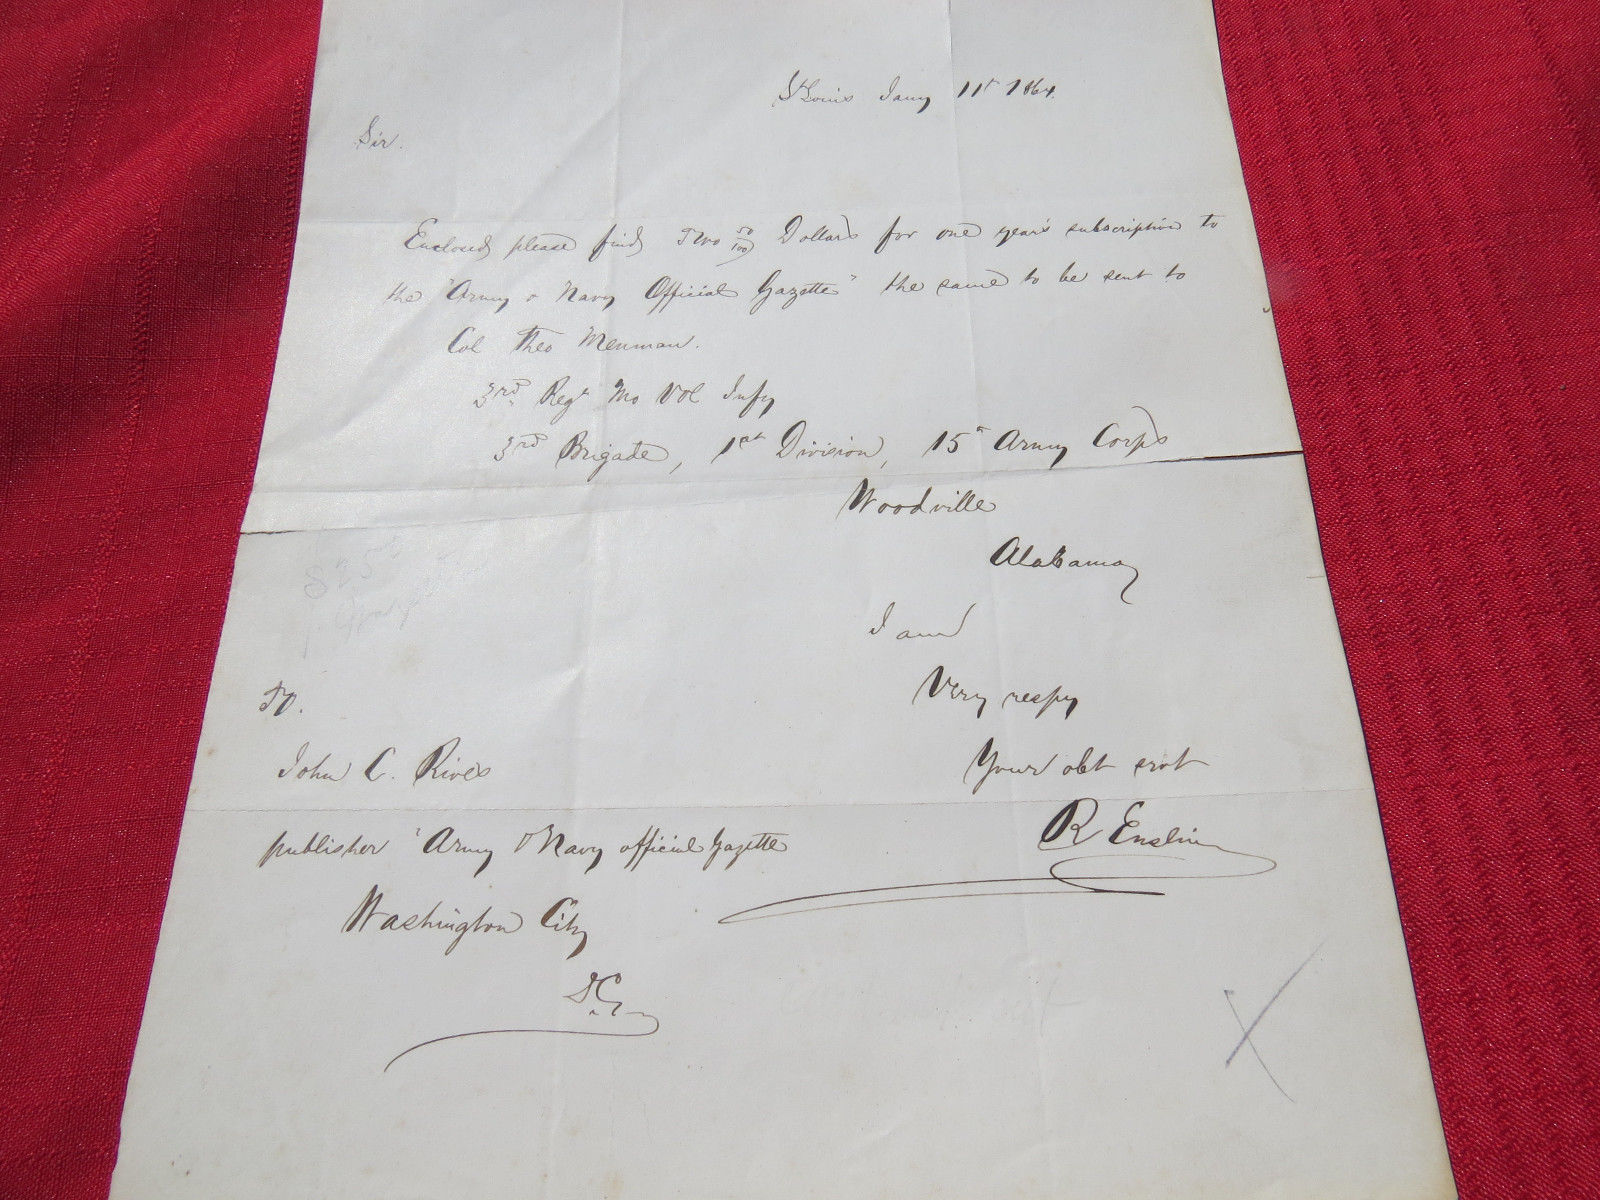 St Louis Jany 11th 1864.
Sir.
Enclosed please find Two 50/100 Dollars for one year's subscription to
the "Army & Navy Official Gazette" the same to be sent to
Col Theo Menman.
3rd Regt Mo Vol Infy
3rd Brigade, 1st Division, 15th Army Corps
Woodville
Alabama
I am
Very respy
Your obt srvt
R Enslin
To.
John C. Rives
publisher "Army & Navy official Gazette
Washington City
D.C.
X